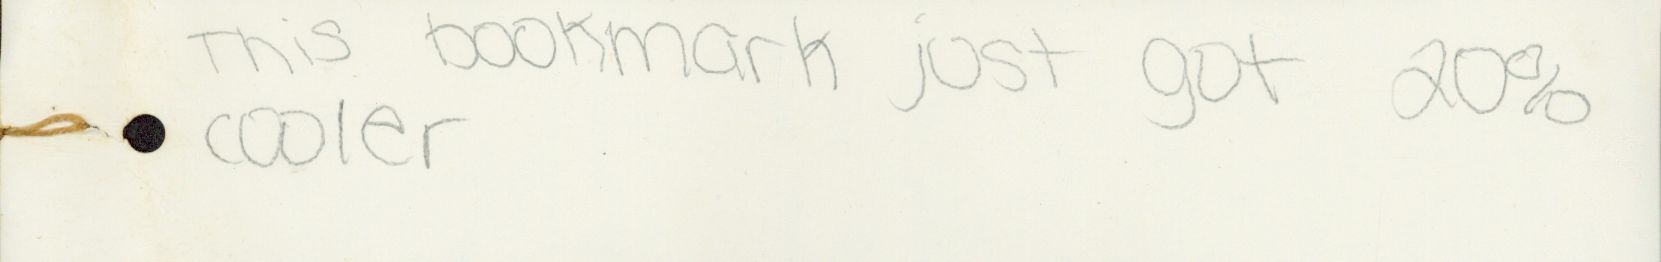 This bookmark just got 20%
cooler